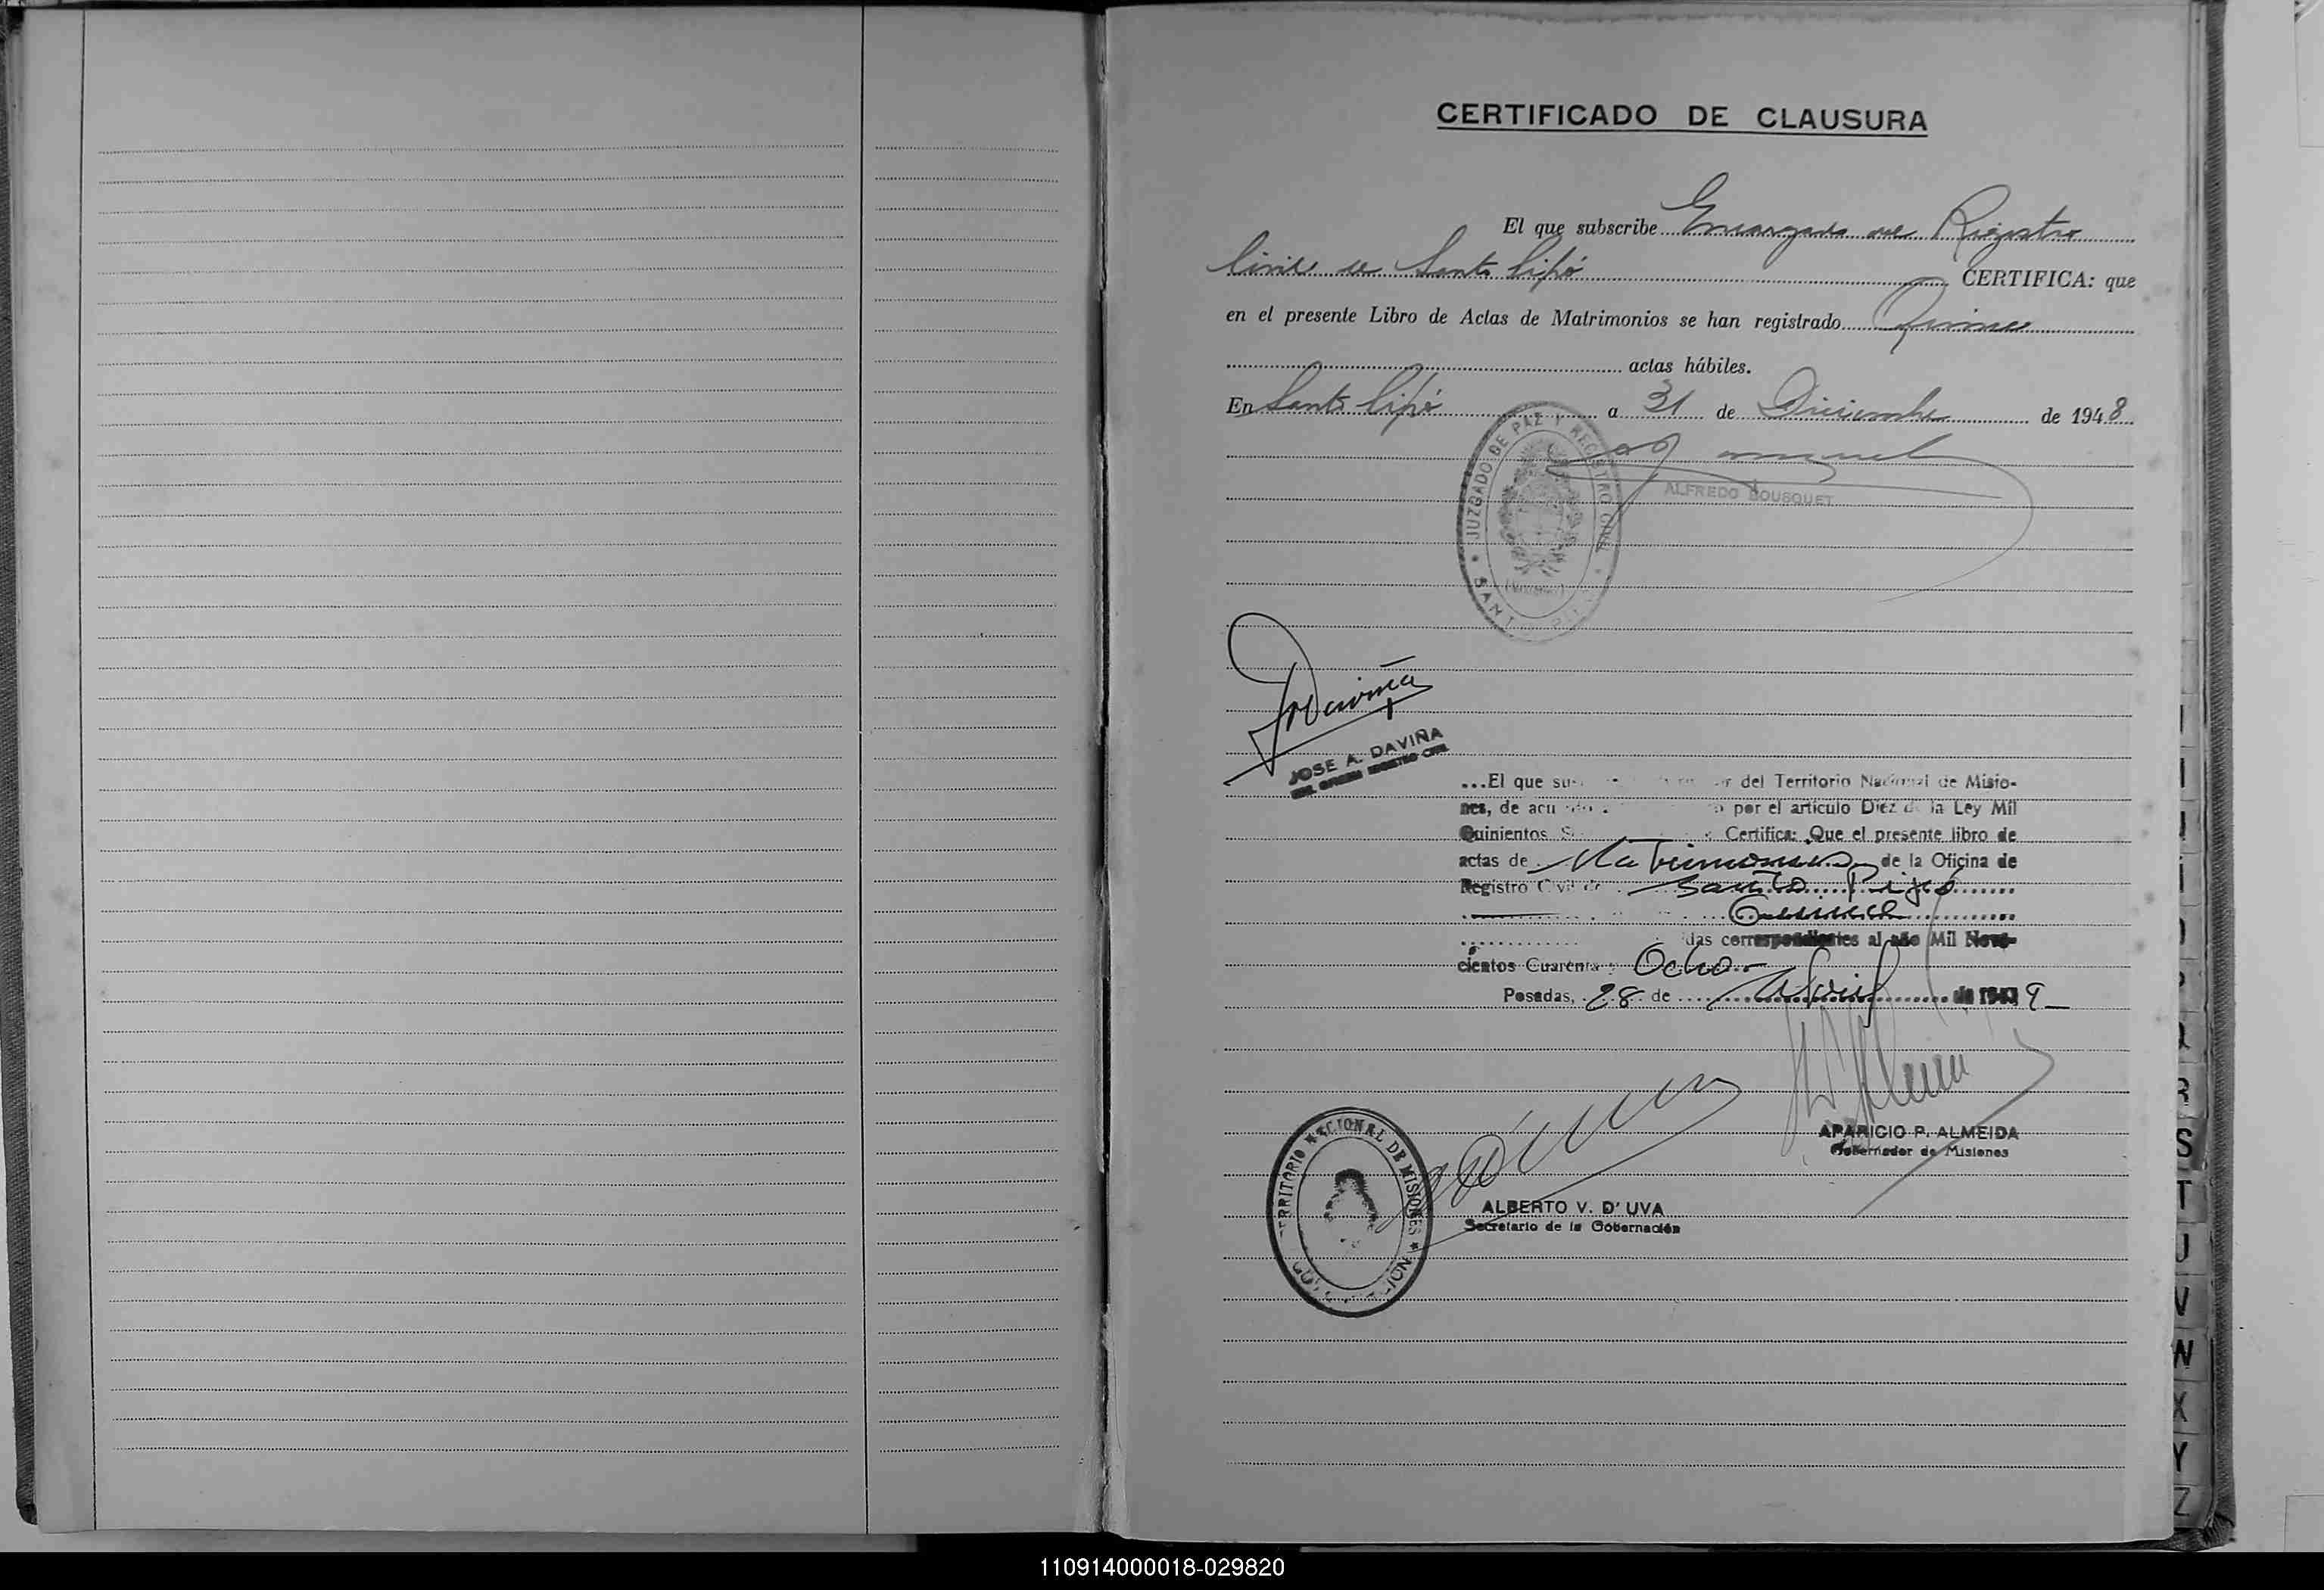 CERTIFICADO DE CLAUSURA
El que subscribe Encargado del Registro
Civil de Santo Pipó CERTIFICA: que
en el presente Libro de Actas de Matrimonios se han registrado Quince
actas hábiles.
En Santo Pipó a 31 de Diciembre de 1948
JUZGADO DE PAZ Y REGISTRO CIVIL
ALFREDO BOUSQUET
JOSE A. DAVIÑA
REGISTRO CIVIL
...El que del Territorio Nacional de Misio-
nes, de por el artículo Diez de la Ley Mil
Quinientos Certifica: Que el presente libro de
actas de Matrimonios de la Oficina de
Registro Civil de Santo Pipó
Quince
das correspondientes al año Mil Nove-
cientos Cuarenta y Ocho
Posadas, 28 de Abril de 1949
APARICIO P. ALMEIDA
Gobernador de Misiones
TERRITORIO NACIONAL DE MISIONES
ALBERTO V. D'UVA
Secretario de la Gobernación
R
S
T
U
V
W
X
Y
Z
110914000018-029820